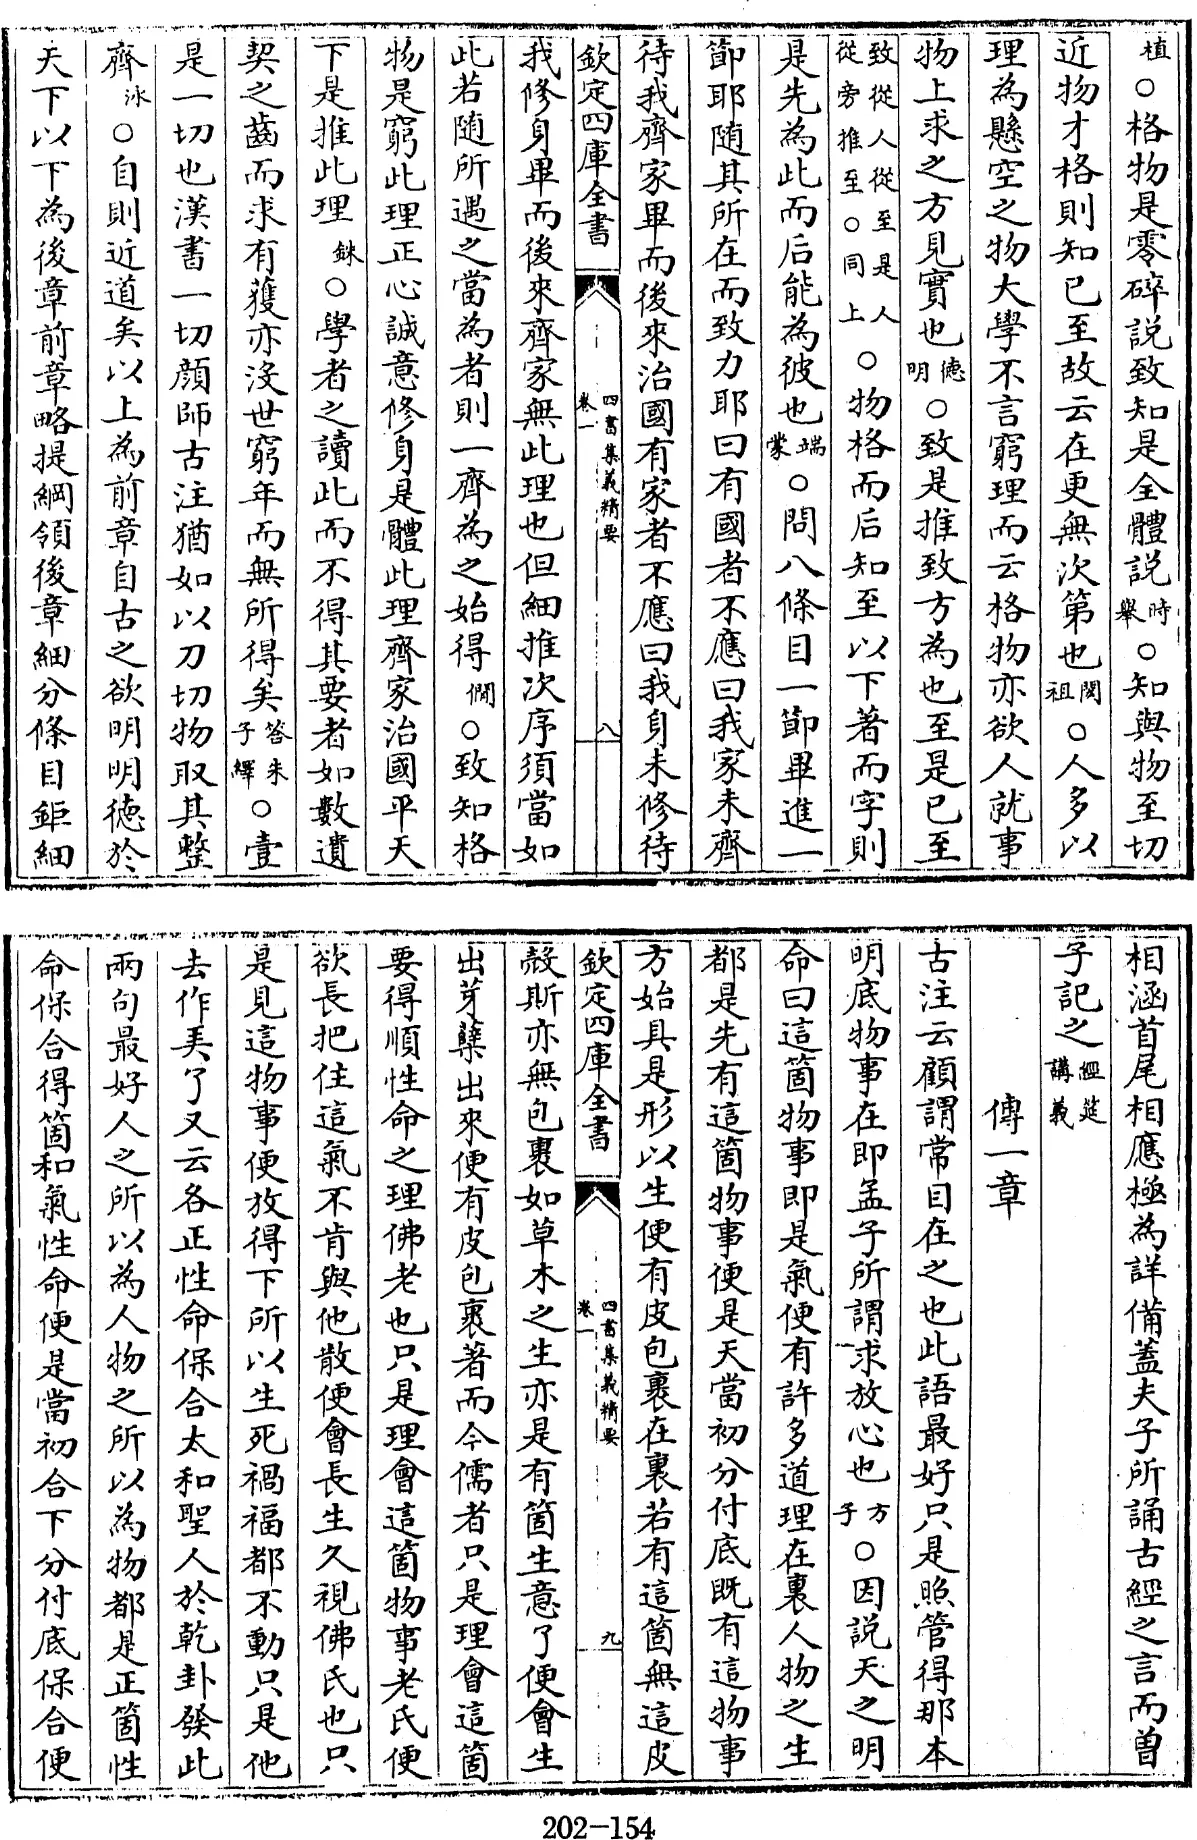 植○格物是零碎説致知是全體説時舉○知與物至切
近物才格則知已至故云在更無次第也閎祖○人多以
理為懸空之物大學不言窮理而云格物亦欲人就事
物上求之方見實也德明○致是推致方為也至是已至
致從人從至是人從旁推至○同上○物格而后知至以下著而字則
是先為此而后能為彼也端蒙○問八條目一節畢進一
節耶随其所在而致力耶曰有國者不應曰我家未齊
待我齊家畢而後來治國有家者不應曰我身未修待
欽定四庫全書
四書集義精要
卷一
八
我修身畢而後來齊家無此理也但細推次序須當如
此若随所遇之當為者則一齊為之始得僩○致知格
物是窮此理正心誠意修身是體此理齊家治國平天
下是推此理銖○學者之讀此而不得其要者如數遺
契之齒而求有獲亦沒世窮年而無所得矣答朱子繹○壹
是一切也漢書一切顔師古注猶如以刀切物取其整
齊泳○自則近道矣以上為前章自古之欲明明德於
天下以下為後章前章略提綱領後章細分條目鉅細
相涵首尾相應極為詳備蓋夫子所誦古經之言而曽
子記之經筵講義
傳一章
古注云顧謂常目在之也此語最好只是照管得那本
明底物事在即孟子所謂求放心也方子○因説天之明
命曰這箇物事即是氣便有許多道理在裏人物之生
都是先有這箇物事便是天當初分付底既有這物事
方始具是形以生便有皮包裹在裏若有這箇無這皮
欽定四庫全書
四書集義精要
卷一
九
殻斯亦無包裹如草木之生亦是有箇生意了便會生
出芽蘖出來便有皮包裹著而今儒者只是理會這箇
要得順性命之理佛老也只是理會這箇物事老氏便
欲長把住這氣不肯與他散便會長生久視佛氏也只
是見這物事便放得下所以生死禍福都不動只是他
去作弄了又云各正性命保合太和聖人於乾卦發此
兩句最好人之所以為人物之所以為物都是正箇性
命保合得箇和氣性命便是當初合下分付底保合便
202-154